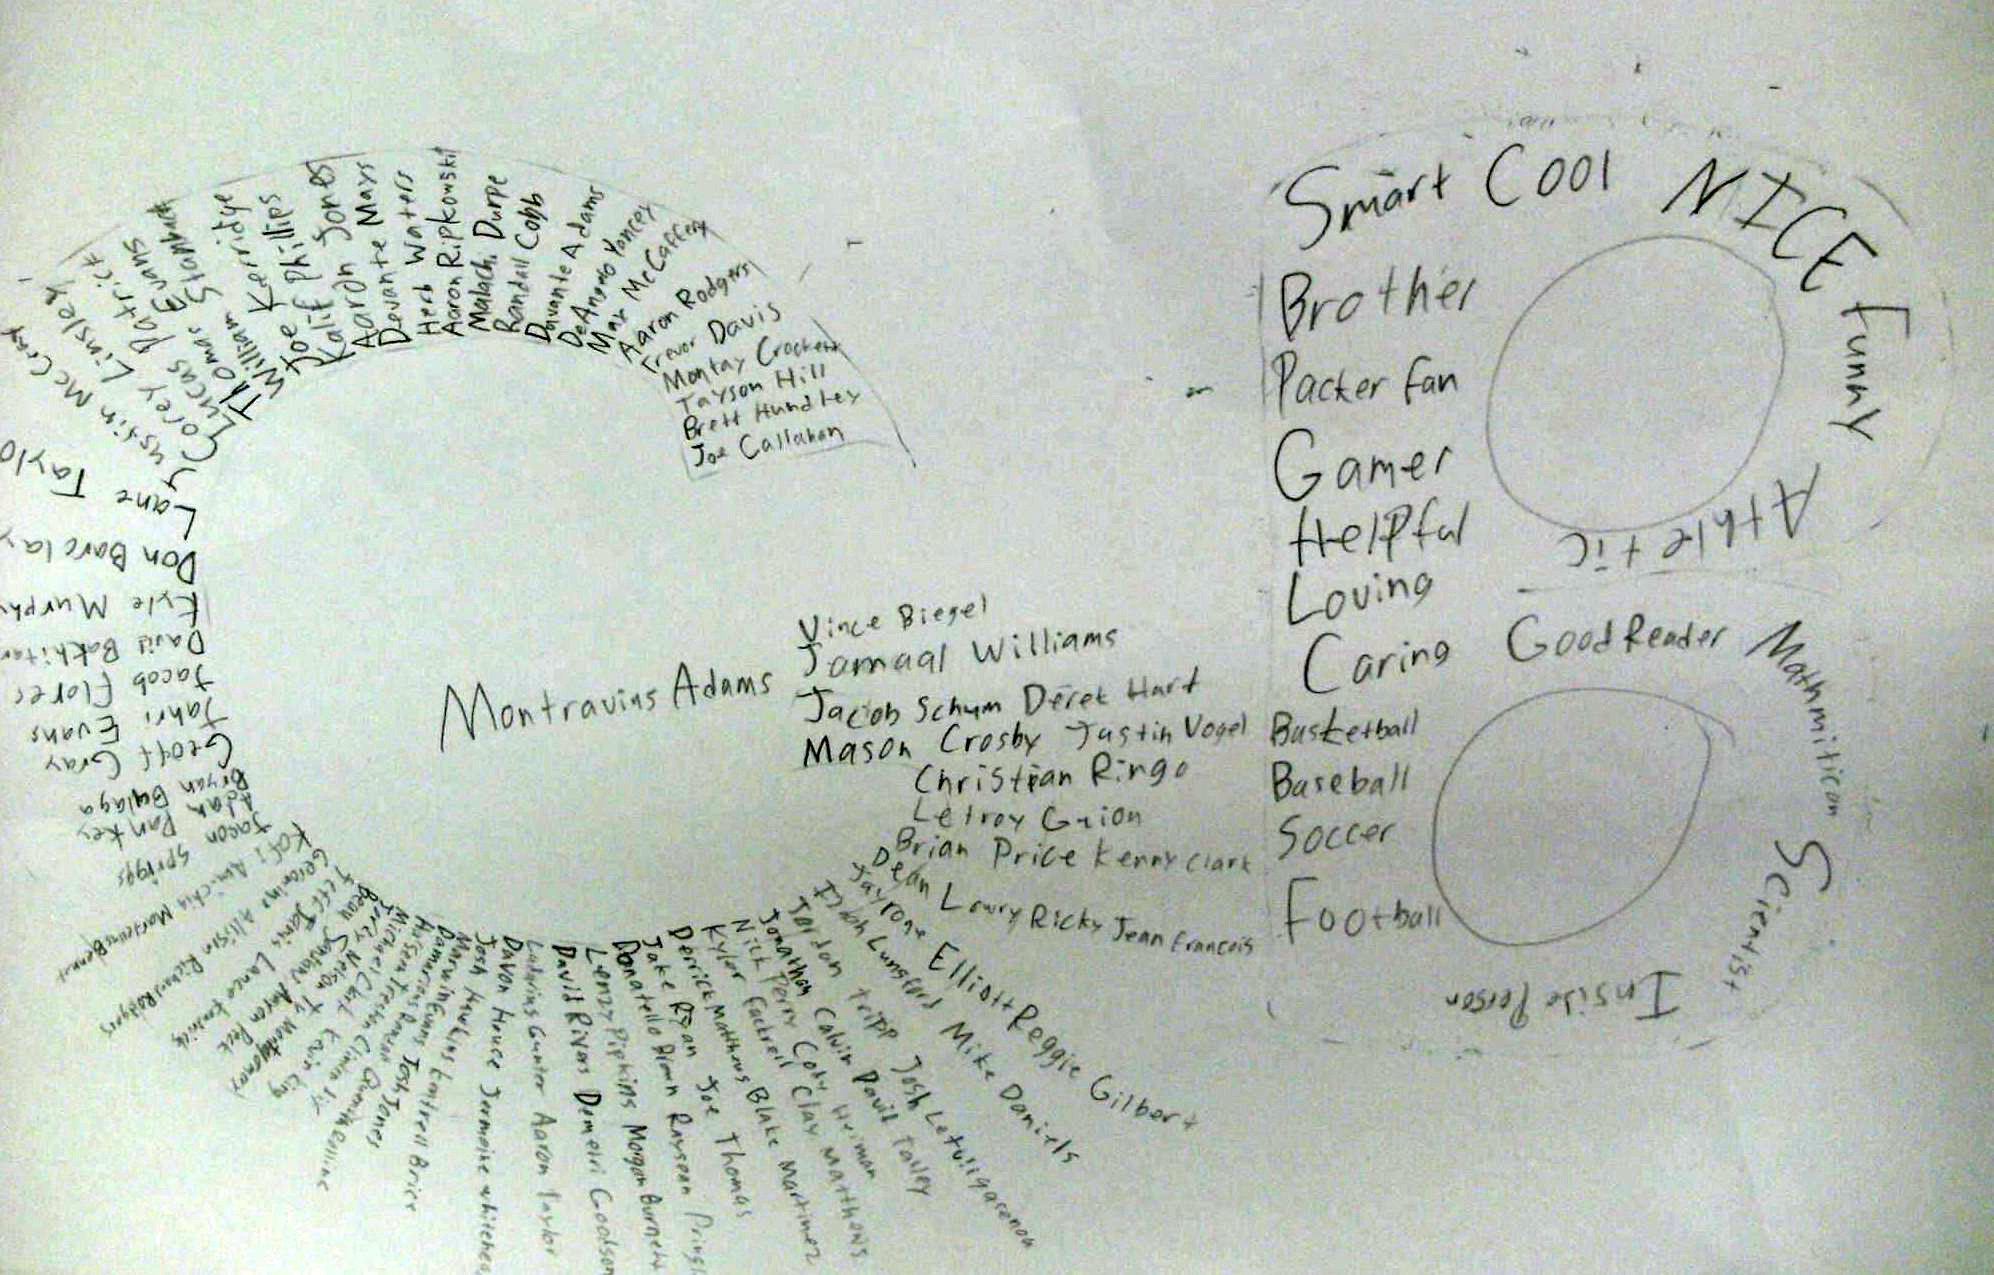 Justin McCray
Corey Linsley
Lucas Patrick
Thomas Evans
William Stanback
Joe Kerridge
Kalif Phillips
Aaron Jones
Devante Mays
Herb Waters
Aaron Ripkowski
Malachi Durpe
Randall Cobb
Davante Adams
DeAngelo Yancey
Max McCaffery
Aaron Rodgers
Trevor Davis
Montay Crockett
Tayson Hill
Brett Hundley
Joe Callahan
Lane Taylo
Don Barclay
Kyle Murphy
David
Jacob Flores
Jahri Evans
Geoff Gray
Bryan Bulaga
Adam Pankey
Jacon Spriggs
Montravius Adams
Vince Biegel
Jamaal Williams
Jacob Schum Derek Hart
Mason Crosby Justin Vogel
Christian Ringo
Letroy Guion
Brian Price Kenny Clark
Dean Lowry Ricky Jean Francois
Jayrone Elliott Reggie Gilbert
Mike Daniels
Jordan Tripp Josh
Jonathan Calvin David Talley
Nick Perry Cody Heiman
Kyler Fackrell Clay Matthows
Derrick Matthows Blake Martinez
Jake Ryan Joe Thomas
Donatello Brown Rayseon Pringl
Lenzy Pipkins Morgan Burnett
David Rivers Demetri Goodson
Ladarius Gunter Aaron Taylor
Davon House Jermaine whitehea
Josh Hawkins Kentrell Brice
Marwin Evans Josh Jones
Smart Cool NICE Funny
Athletic
Brother
Packer fan
Gamer
Helpful
Loving
Caring Good Reader Mathmitican Scientist
Inside Person
Basketball
Baseball
Soccer
Football